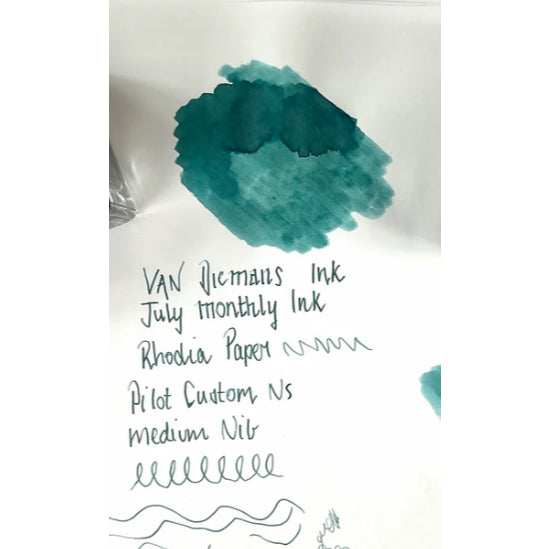 VAN Diemans Ink
July monthly Ink
Rhodia Paper
Pilot Custom Ns
medium Nib